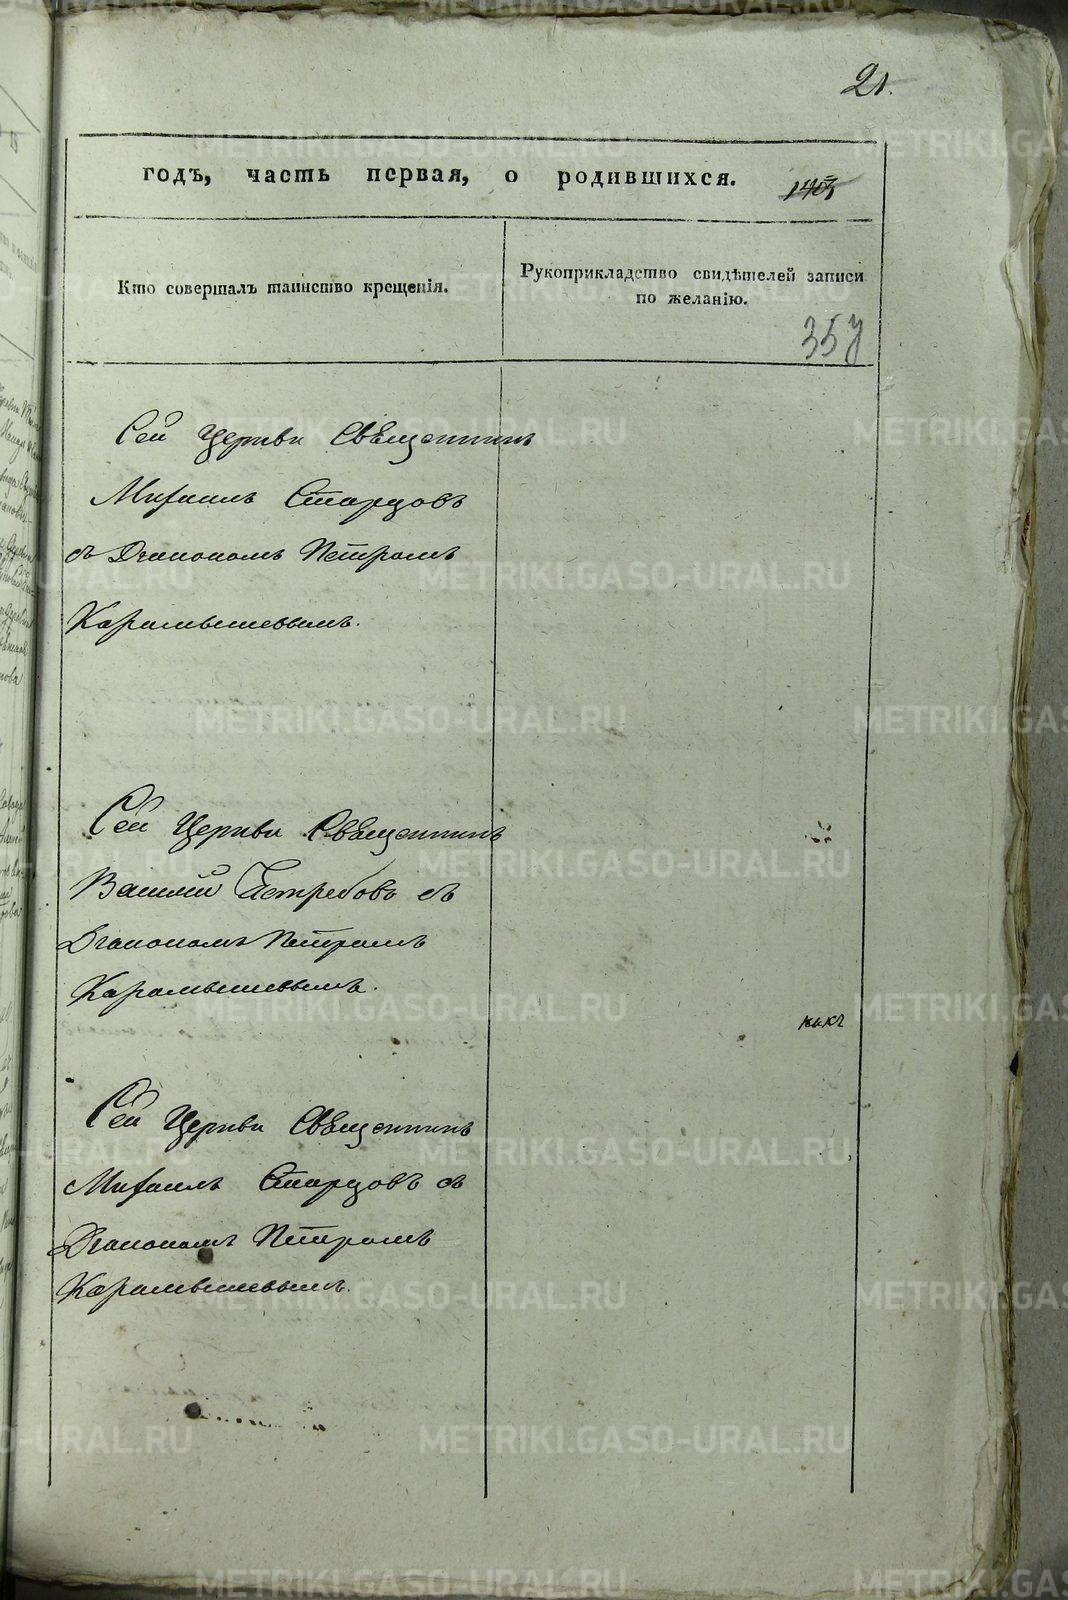 21.
годъ, часть первая, о родившихся.
Кто совершалъ таинство крещенія.
Рукоприкладство свидѣтелей записи
по желанію.
357
Сей Церкви Священникъ
Михаилъ Старцовъ
съ Діакономъ Петромъ
Карамышевымъ.
Сей Церкви Священникъ
Василій Ястребовъ съ
Діакономъ Петромъ
Карамышевымъ.
Сей Церкви Священникъ
Михаилъ Старцовъ съ
Діакономъ Петромъ
Карамышевымъ.
METRIKI.GASO-URAL.RU